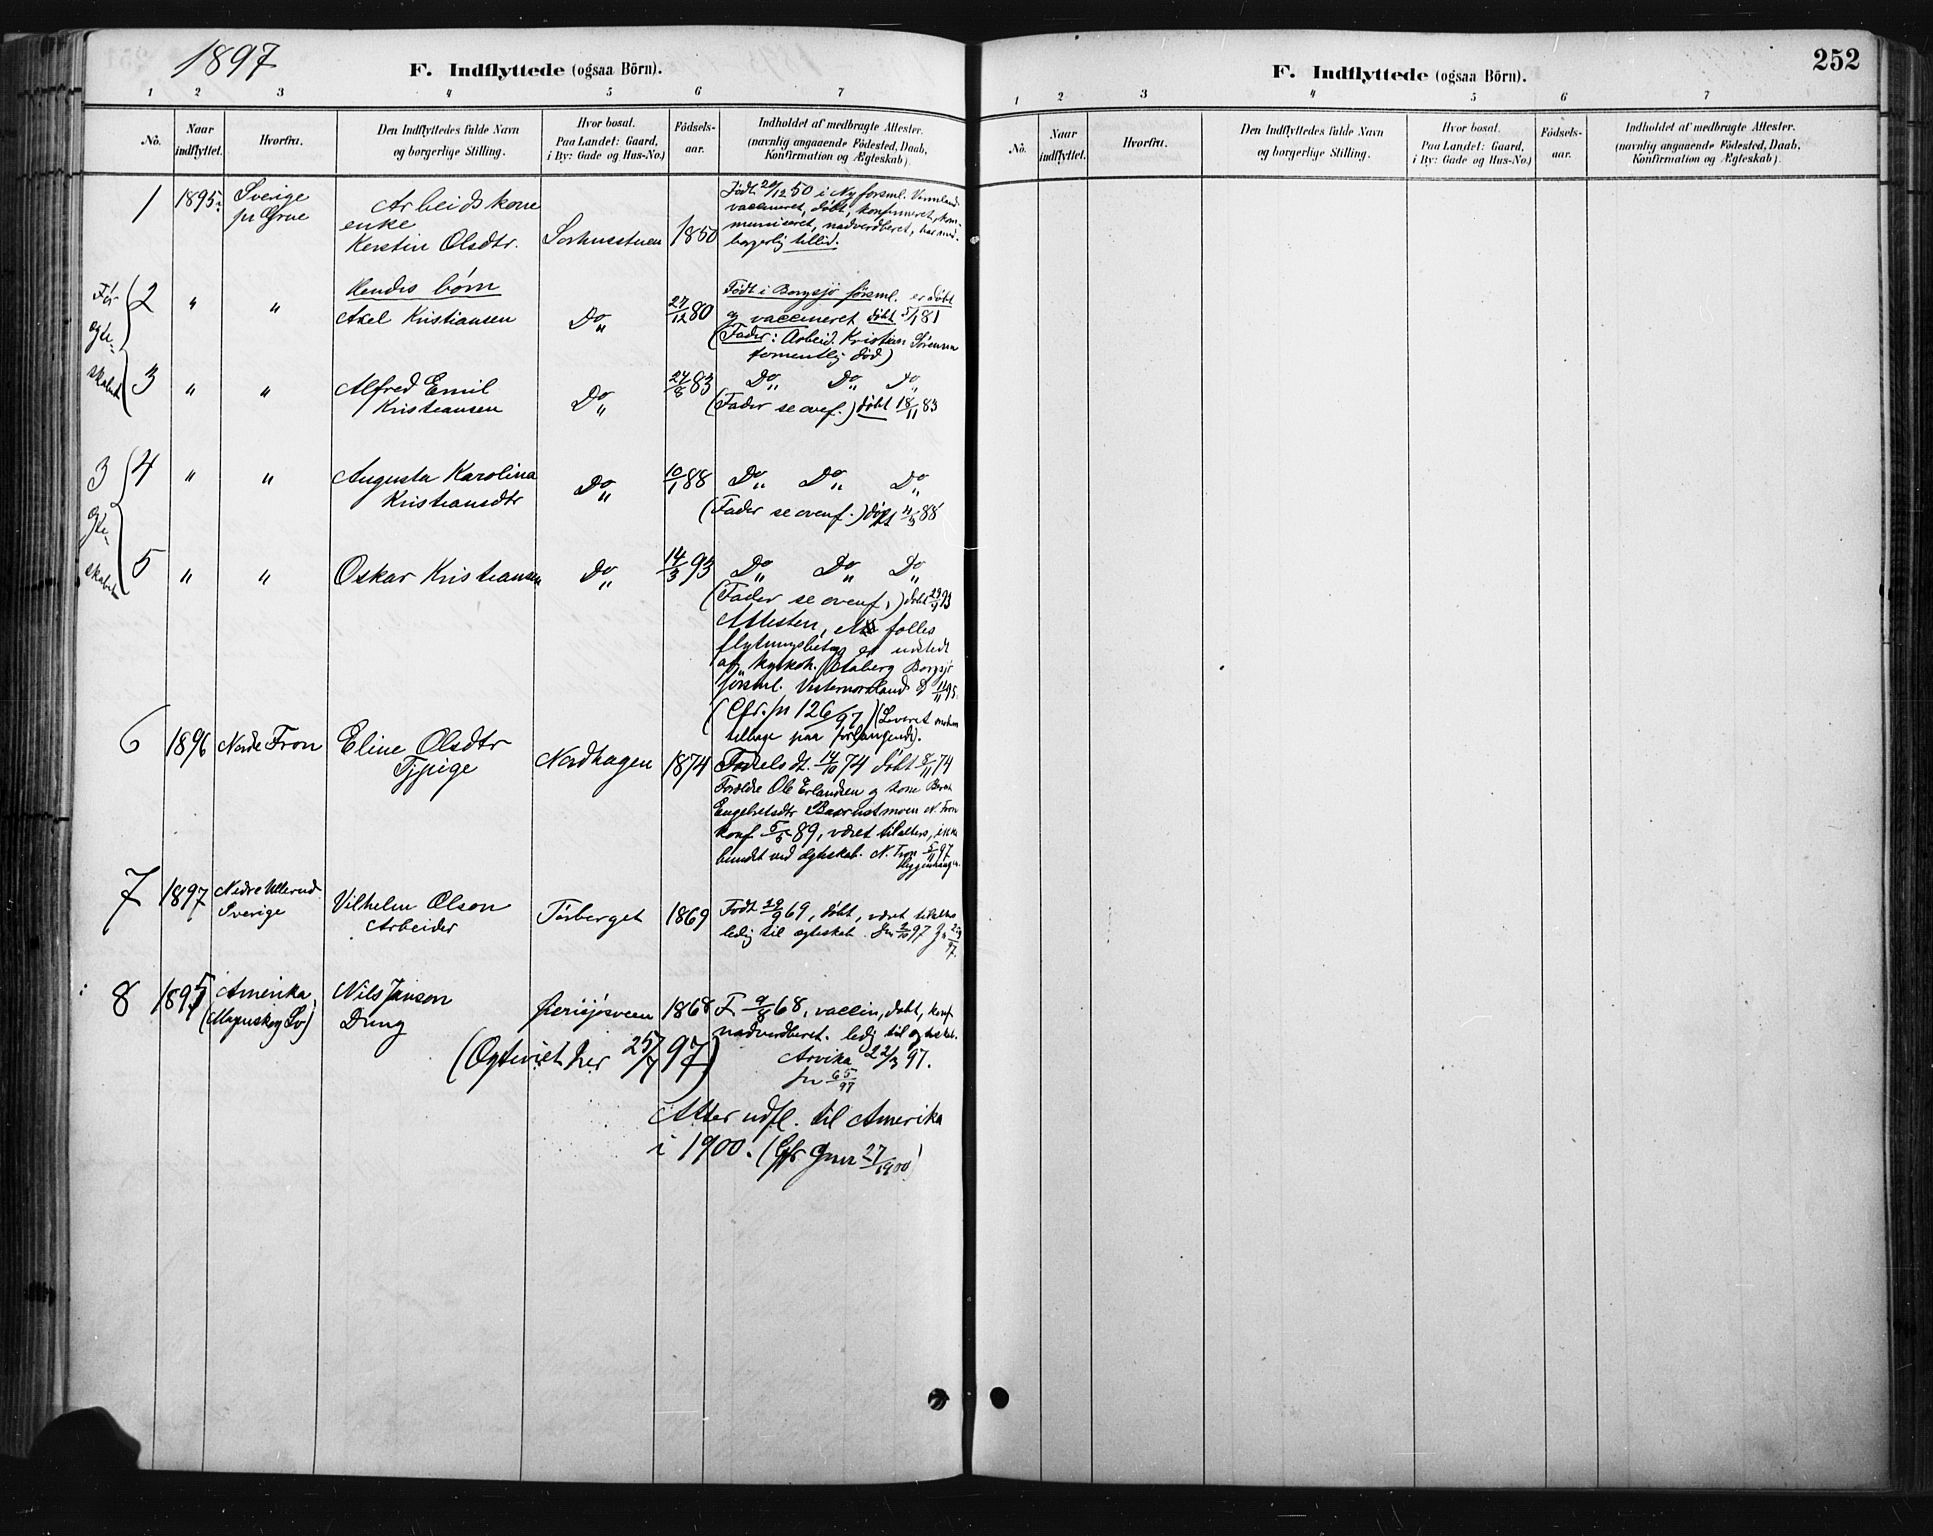 1897
F. Indflyttede (ogsaa Börn).
1 2 3 4 5 6 7
No.
Naar indflyttet.
Hvorfra.
Den Indflyttedes fulde Navn
og borgerlige Stilling.
Hvor bosat.
Paa Landet: Gaard,
i By: Gade og Hus-No.)
Födsels-
aar.
Indholdet af medbragte Attester.
(navnlig angaaende Födested, Daab,
Konfirmation og Ægteskab).
1 1895 Sverige
pr Grue
Arbeidskone
enke
Kerstin Olsdtr. 1850
Født 20/12 50 i Ny forsml. Vermland
vaccineret, døbt, konfirmeret, kom-
municeret, nadverdberet, har med-
borgerlig tillid.
Før
ægte-
skabet
2 " " Hendes børn
Axel Kristiansen Do " 27/12 80
Født i Borgsjø førsml. er døbt
og vaccineret døbt 5/1 81
(Fader: Arbeid. Kristian Sørensen
formentlig død)
3 " " Alfred Emil
Kristiansen Do " 83
Do " Do " Do "
(Fader se ovenf.) døbt 18/11 83
I
ægte-
skabet
4 " " Augusta Karolina
Kristiansdtr Do " 10/1 88
Do " Do " Do "
(Fader se ovenf.) døbt 88
5 " " Oskar Kristiansen Do " 14/3 93
Do " Do " Do "
(Fader se ovenf.) døbt 93
Attesten, fælles
flytningsbetyg er udstedt
af Kyrkoh. Borgsjø
førsml. Vesternorrland d 11/11 95.
(Cfr. jn 126/97) (Leveret
tilbage paa forlangende).
6 1896 Nordre Fron Eline Olsdtr
Tjpige Nordhagen 1874
Fødselsdt. 14/10 74 døbt 8/11 74
Forældre Ole Erlandsen og kone Berit
Engebretsdtr N. Fron
konf. 89, været tilalters, ikke
bundet ved ægteskab. N. Fron 97
7 1897 Nedre Ullerud
Sverige Vilhelm Olson
Arbeider Torberget 1869
Født 69, døbt, været tilalters
ledig til ægteskab. 97
8 1895 Amerika
(Sv) Nils Janson
Dreng 1868
F. 68, vaccin, døbt, konf.
nadverdberet. ledig til ægteskab.
(Ægteviet her 25/7 97) Arvika 22/3 97.
jn 65/97
Atter udfl. til Amerika
i 1900. (Cfr 27/1900)
252
F. Indflyttede (ogsaa Börn).
1 2 3 4 5 6 7
No.
Naar
indflyttet.
Hvorfra.
Den Indflyttedes fulde Navn
og borgerlige Stilling.
Hvor bosat.
Paa Landet: Gaard,
i By: Gade og Hus-No.)
Födsels-
aar.
Indholdet af medbragte Attester.
(navnlig angaaende Födested, Daab,
Konfirmation og Ægteskab).